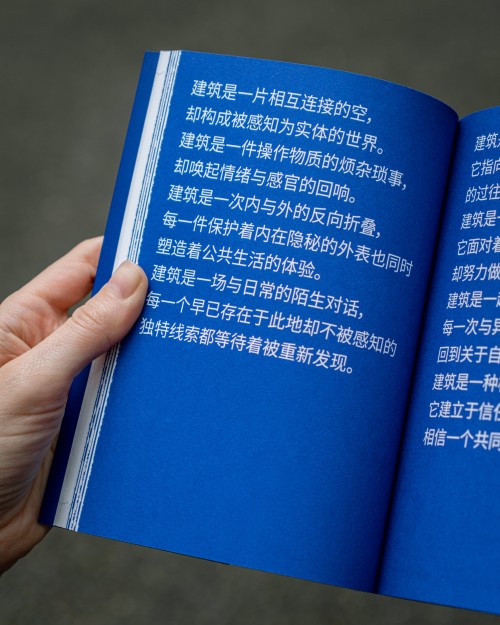 建筑是一片相互连接的空,
却构成被感知为实体的世界。
建筑是一件操作物质的烦杂琐事,
却唤起情绪与感官的回响。
建筑是一次内与外的反向折叠,
每一件保护着内在隐秘的外表也同时
塑造着公共生活的体验。
建筑是一场与日常的陌生对话,
每一个早已存在于此地却不被感知的
独特线索都等待着被重新发现。
建筑
它指向
的过往
建筑是一
它面对着
却努力做
建筑是一
每一次与
回到关于自
建筑是一种
它建立于信任
相信一个共同